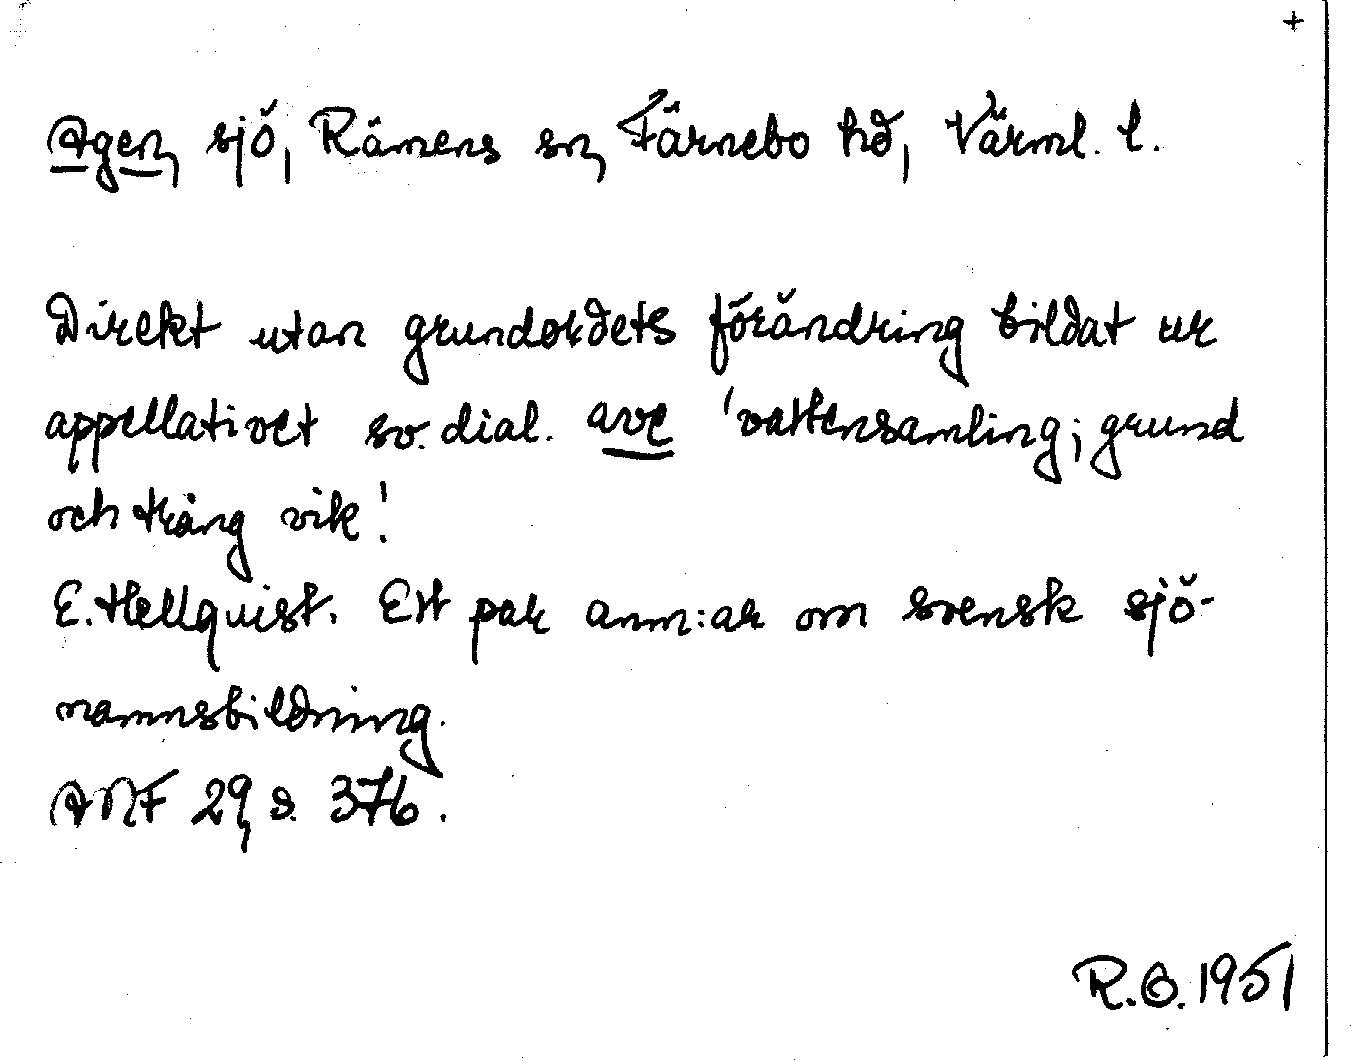 +
Agen, sjö, Rämens sn, Färnebo hd, Värml. l.
Direkt utan grundordets förändring bildat ur
appellativet sv. dial. ave 'vattensamling; grund
och trång vik'.
E. Hellquist. Ett par anm:ar om svensk sjö-
namnsbildning.
ANF 29, s. 376.
R.O. 1951